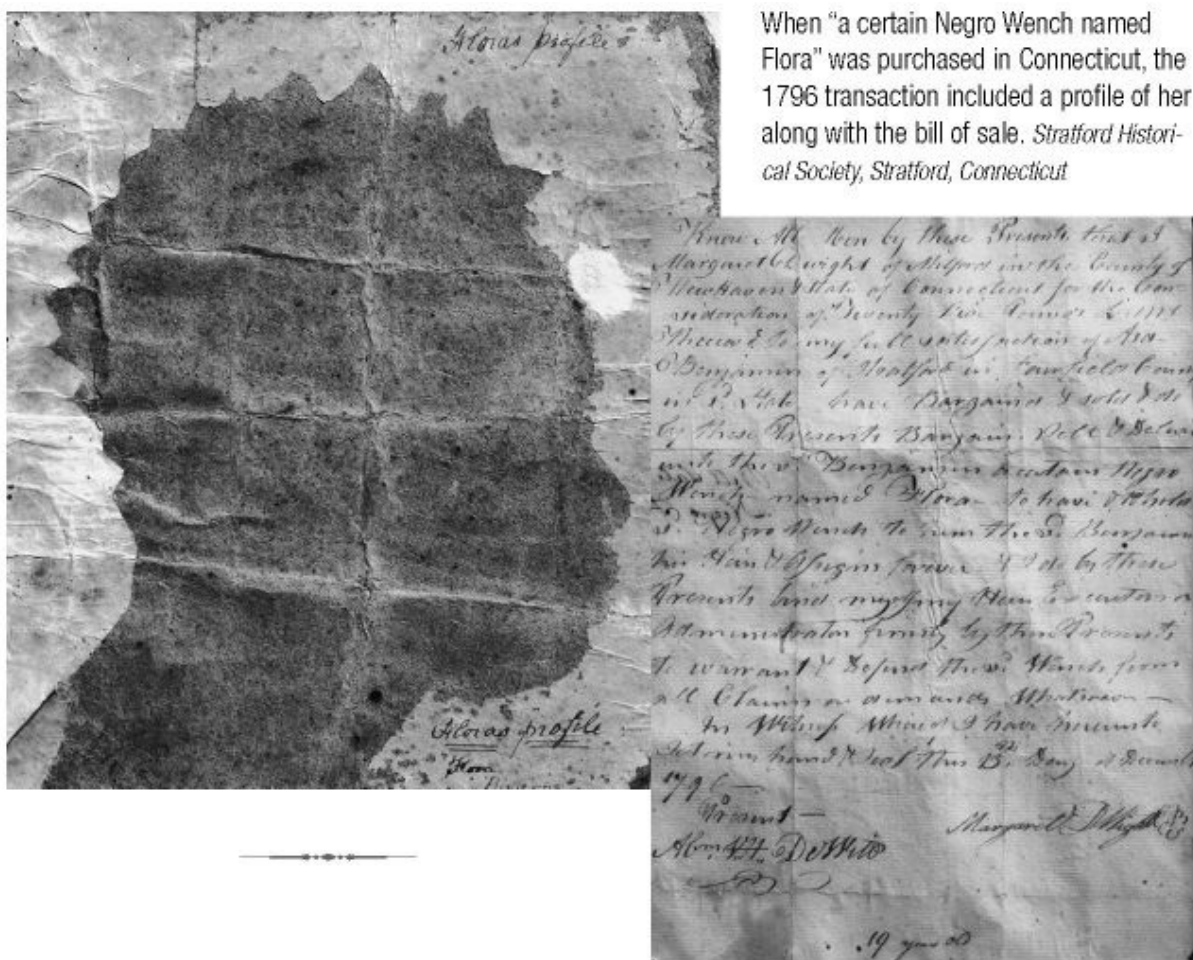 Floras profile
When “a certain Negro Wench named
Flora” was purchased in Connecticut, the
1796 transaction included a profile of her
along with the bill of sale. Stratford Histori-
cal Society, Stratford, Connecticut
Floras profile
From
Know All Men by these Presents that I
Margaret Dwight of Milford in the County of
New Haven & State of Connecticut for the Con-
sideration of Twenty Five Pounds
to my full satisfaction of Asa
Benjamin of Stratford in Fairfield County
in sd State have Bargaind & sold & do
by these Presents Bargain Sell &
unto the sd Benjamin a certain Negro
Wench named Flora to have & to hold
sd Negro Wench to him the sd Benjamin
his Heirs & Assigns forever & I do by these
Presents bind myself my Heirs Executors or
Administrators firmly by these Presents
to warrant & Defend the sd Wench from
all Claims or demands Whatsoever —
In Witness Whereof I have hereunto
Set my hand & Seal this 13th Day of
1796 —
Present —
Margaret Dwight
DeWitt
19 years old